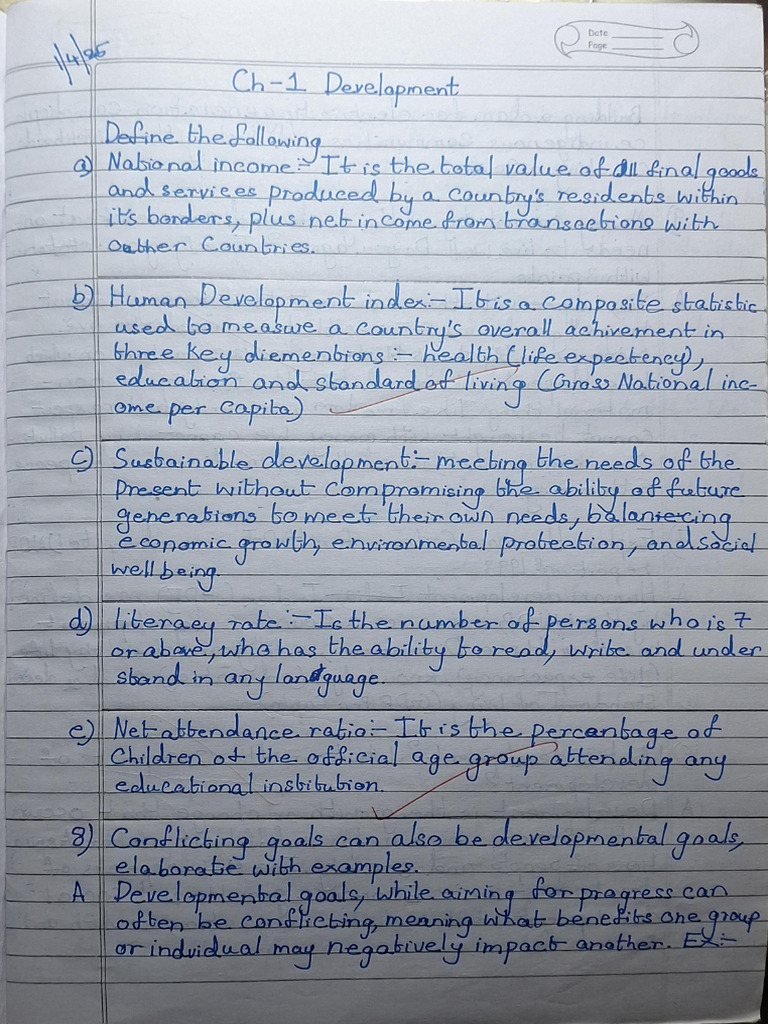 1/4/25
Date
Page
Ch-1 Development
Define the following
a) National income:- It is the total value of all final goods
and services produced by a country's residents within
it's borders, plus net income from transactions with
outher Countries.
b) Human Development index:- It is a composite statistic
used to measure a country's overall achivement in
three key diementions:- health (life expectency),
education and standard of living (Gross National inc-
ome per capita)
c) Sustainable development:- meeting the needs of the
Present without compromising the ability of future
generations to meet their own needs, balancing
economic growth, environmental protection, and social
well being.
d) literacy rate:- Is the number of persons who is 7
or above, who has the ability to read, write and under
stand in any language.
e) Net attendance ratio:- It is the percentage of
Children of the official age group attending any
educational institution.
8) Conflicting goals can also be developmental goals,
elaborate with examples.
A Developmental goals, while aiming for progress can
often be conflicting, meaning what benefits one group
or indvidual may negatively impact another. Ex:-